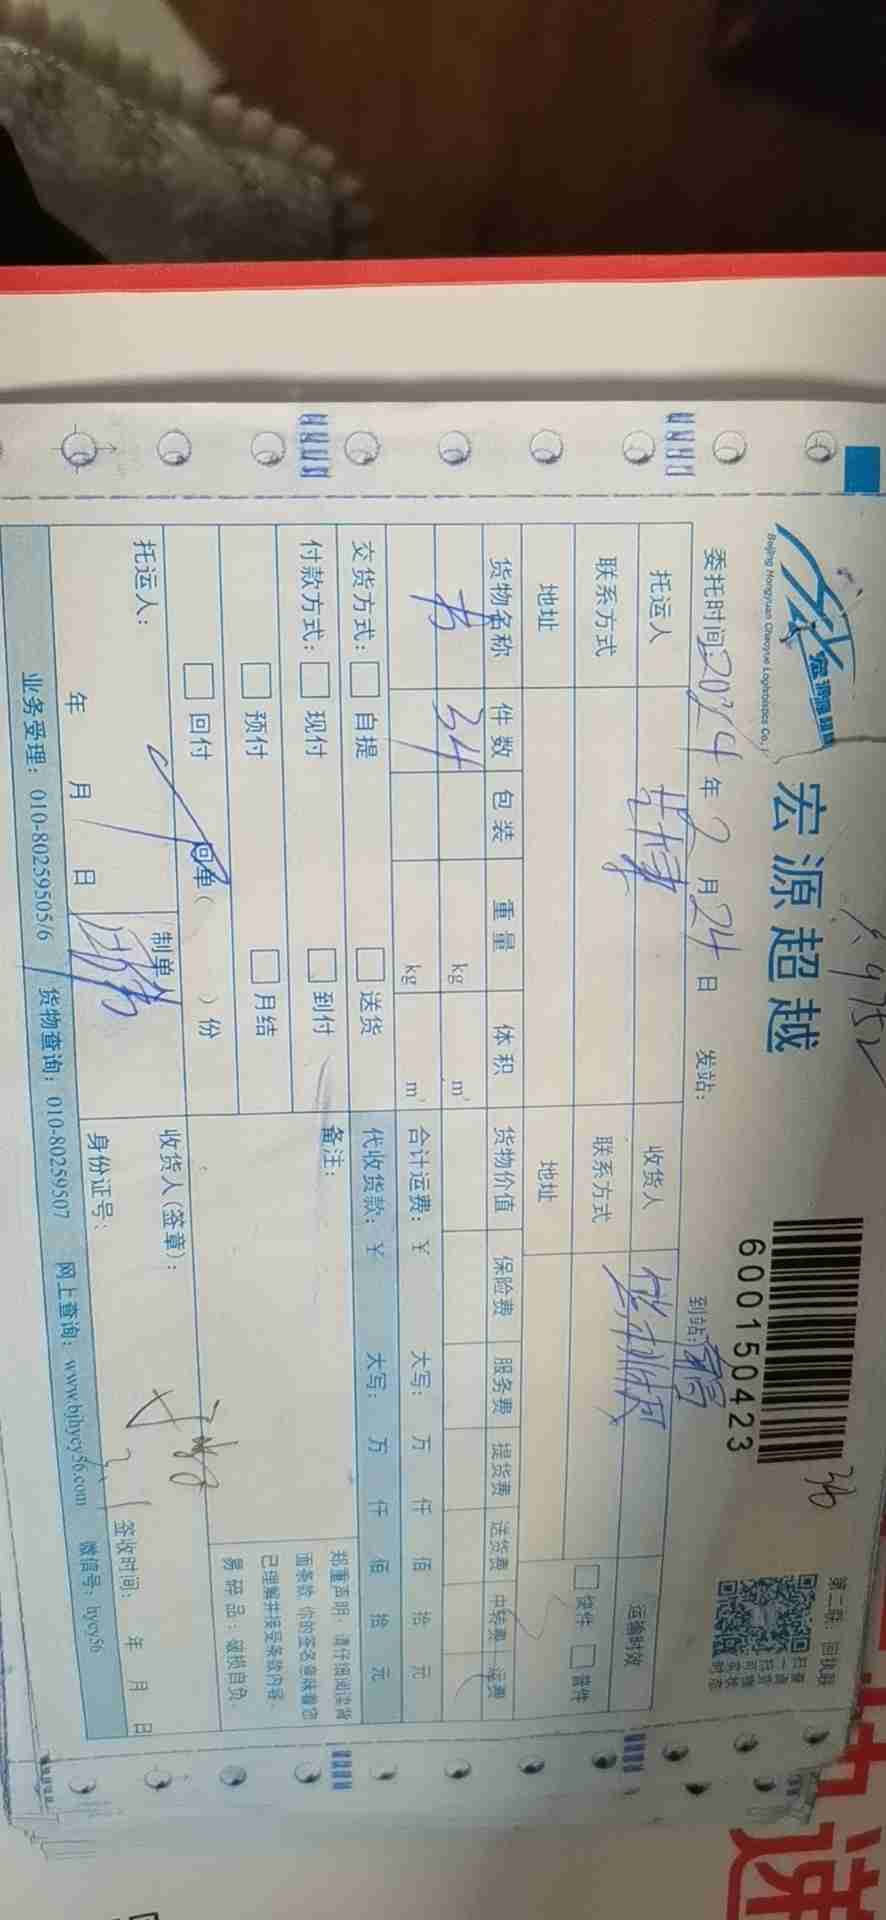 宏源超越
Beijing Hongyuan Chaoyue Loghtistics Co.,
宏源超越
600150423
36
第二联：回执联
委托时间:2024年2月24日
发站:
到站:
托运人
收货人
运输时效
联系方式
联系方式
快件 普件
地址
地址
货物名称 件数 包装 重量 体积 货物价值 保险费 服务费 提货费 送货费 中转费 运费
书 34 kg m³
kg m³ 合计运费：¥ 大写： 万 仟 佰 拾 元
交货方式： 自提 送货 代收货款：¥ 大写： 万 仟 佰 拾 元
付款方式： 现付 到付 备注：
预付 月结
回付 回单（ ）份
郑重声明：请仔细阅读背
面条款 你的签名意味着您
已理解并接受条款内容。
易碎品：破损自负。
托运人： 制单人 收货人(签章)：
年 月 日 身份证号： 签收时间： 年 月 日
业务受理：010-80259505/6 货物查询：010-80259507 网上查询：www.bjhycy56.com 微信号：hycy56